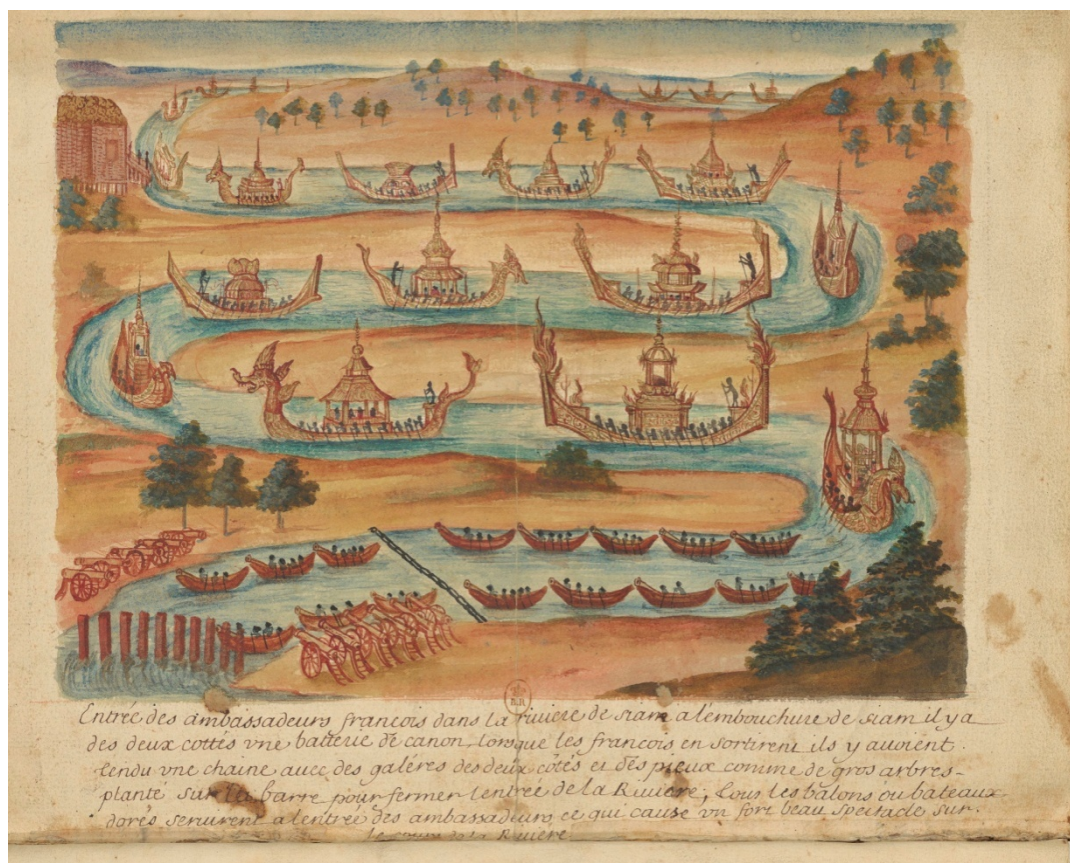 Entrée des ambassadeurs francois dans la riuiere de siam a lembouchure de siam il y a
des deux cottés vne batterie de canon lorsque les francois en sortirent ils y auoient
tendu vne chaine auec des galéres des deux côtés et des pieux comme de gros arbres-
planté sur la barre pour fermer lentrée de la Riuiere; tous les balons ou bateaux
dorés seruirent a lentrée des ambassadeurs ce qui cause vn fort beau spectacle sur.
le cours de la Riuiere